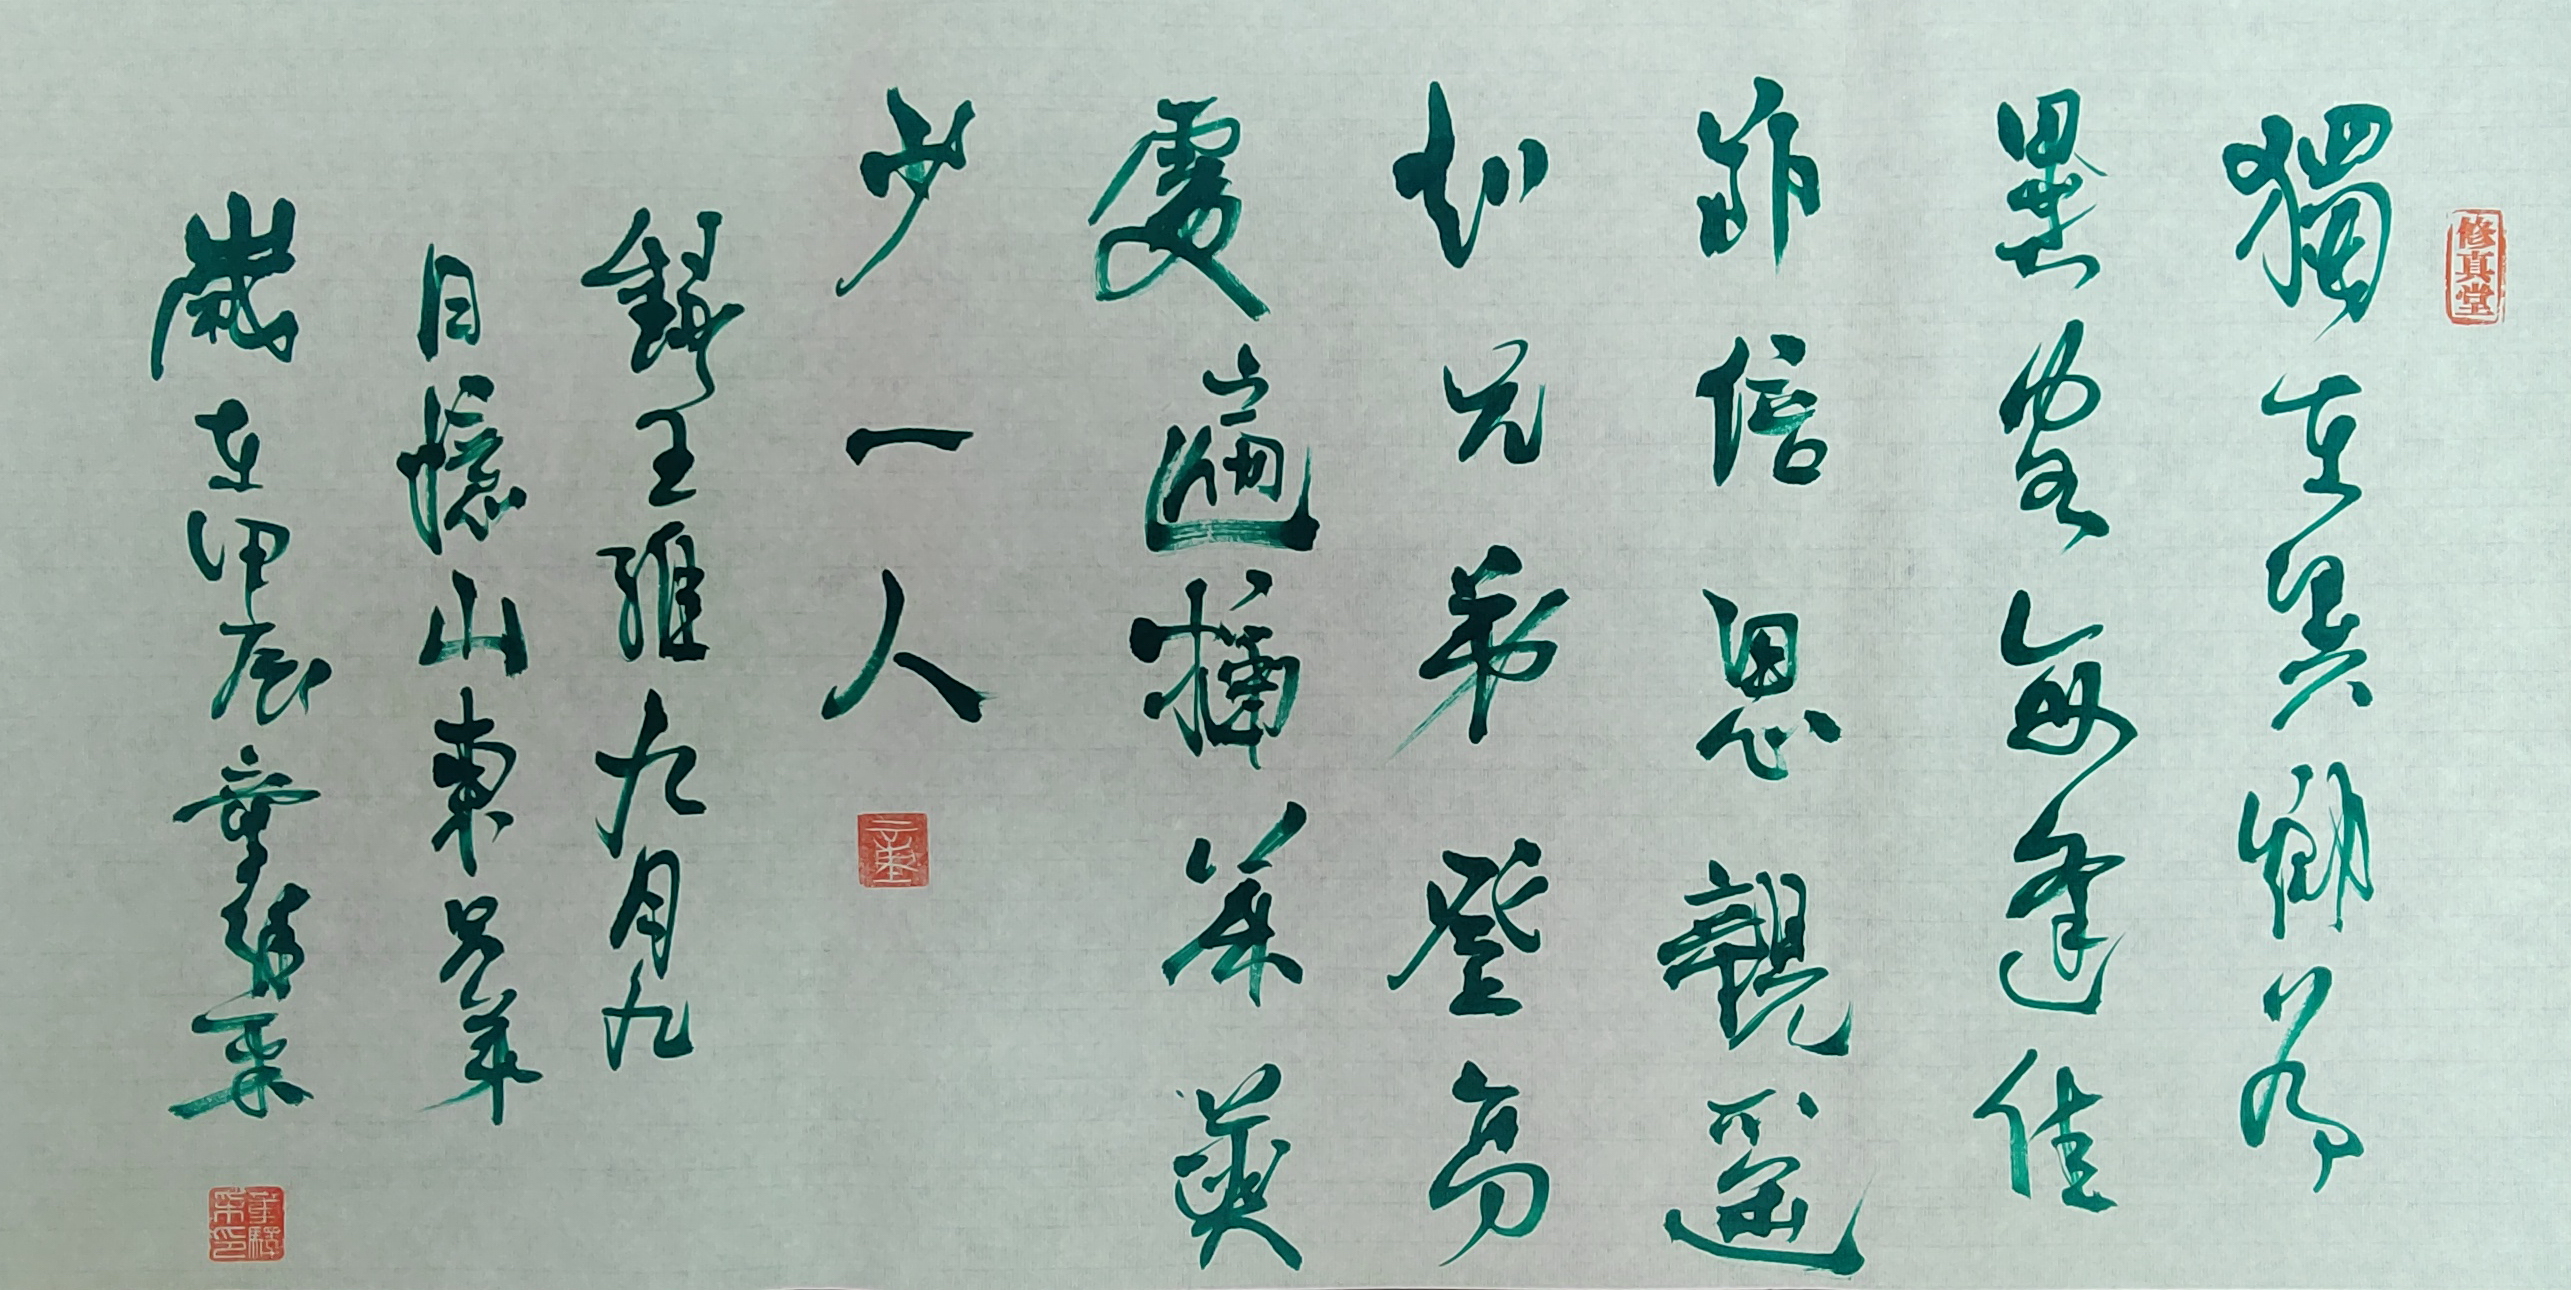 修真堂
獨在異鄉為
異客每逢佳
節倍思親遙
知兄弟登高
處遍插茱萸
少一人
童
錄王維九月九
日憶山東兄弟
歲在甲辰童驛采
童驛采印